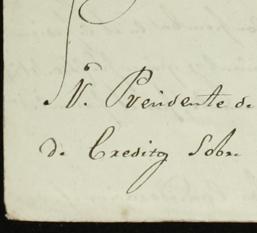 Sr. Presidente de
de Credito Sobre